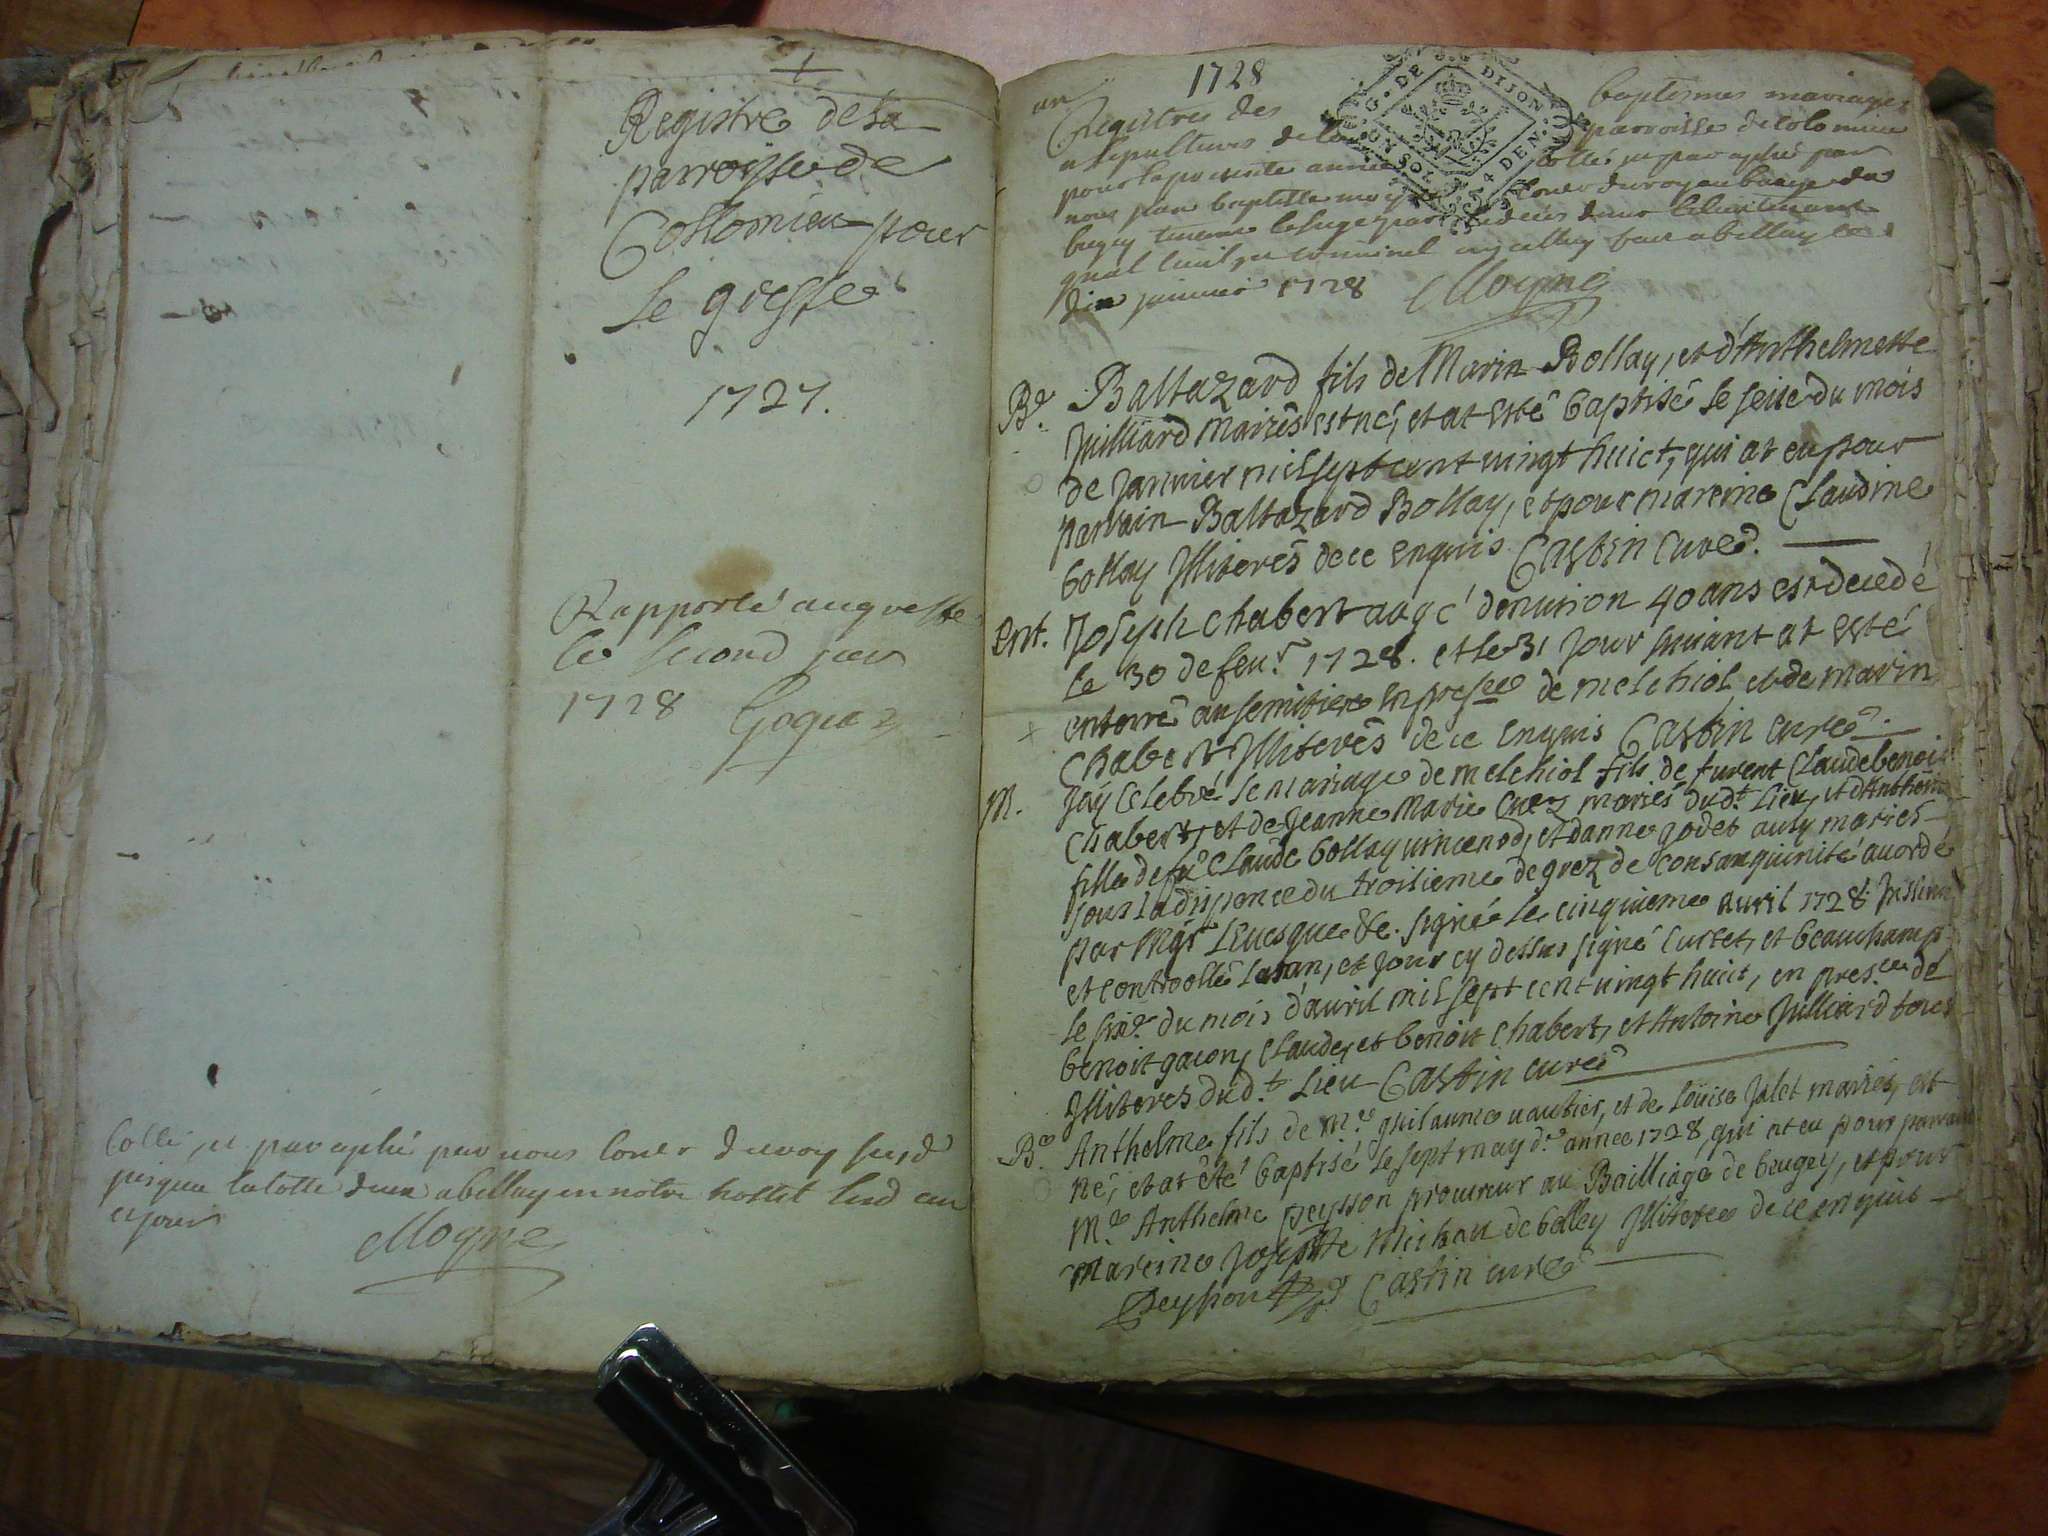 Registre de la
parroisse de
Collomieu pour
le greffe
1727.
Rapporté au greffe
le second jan
1728 Goquaz
Collé, et paraphé par nous Coner du roy susd
jusque la cotte dune a belley en notre hostel lesd an
et jour
Moyne
1728
Registres des baptesmes mariages
et sepultures de la parroisse de Colomieu
pour la presente année collé et paraphé par
nous jean baptiste moyne Coner du roy au baage de
bugey
qnal civil et criminel en celluy fait a belley ce
dix janvier 1728 Moyne
G. DE DIJON
UN SOL 4 DEN.
Be. Baltazard fils de Marin Bollay, et d'Anthelmette
Juilliard mariés est né, et at esté baptisé le seize du mois
de Janvier mil sept cent vingt huict, qui at eu pour
parrain Baltazard Bollay, et pour mareine Claudine
bollay Illiterés de ce enquis Castin curé.
Ent. Joseph Chabert aagé d'environ 40 ans est decedé
le 30 de feur. 1728. et le 31 jour suivant at esté
enterré au semitiere en presce de melchiol et de marin
Chabert Illiterés de ce enquis Castin curé.
M. J'ay celebré le mariage de melchiol fils de furent Claude benoit
Chabert, et de Jeanne Marie Cuez mariés dud.t Lieu, et d'Anthelme
fille de fu Claude bollay vincenod, et d'anne godet aussy mariés
sous la dispence du troisieme degrez de consanguinité accordé
par Mgr L'evesque &c. signé le cinquieme avril 1728 Insinué
et controollé Lesd an, et jour cy dessus signé Curtet, et beauchamp
le sixe. du mois d'avril mil sept cent vingt huict, en presce de
benoit gacon, Claude, et benoit Chabert, et Antoine Juilliard tous
Illiterés dud.t Lieu Castin curé
Be. Anthelme fils de Me. guilaume vautier, et de Loüise Jalet mariés, est
né, et at été baptisé le sept may de. année 1728, qui at eu pour parrain
Me. Anthelme peysson procureur au Bailliage de beugey, et pour
mareine Josephte Michau de belley Illiterée de ce enquise
Peysson Castin curé